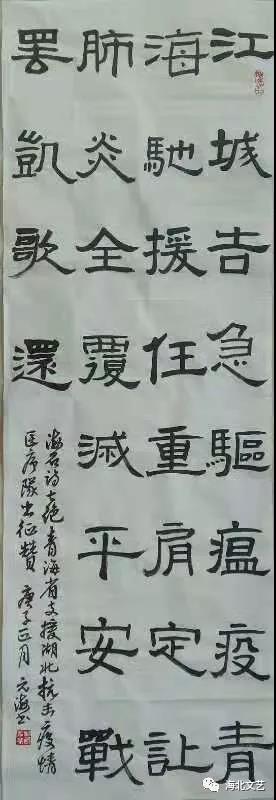 江城告急驅瘟疫青
海馳援任重肩定让
肺炎全覆滅平安戰
罢凱歌還
海石诗七绝青海省支援湖北抗击疫情
医疗隊出征赞 庚子正月 元海书
海北文艺